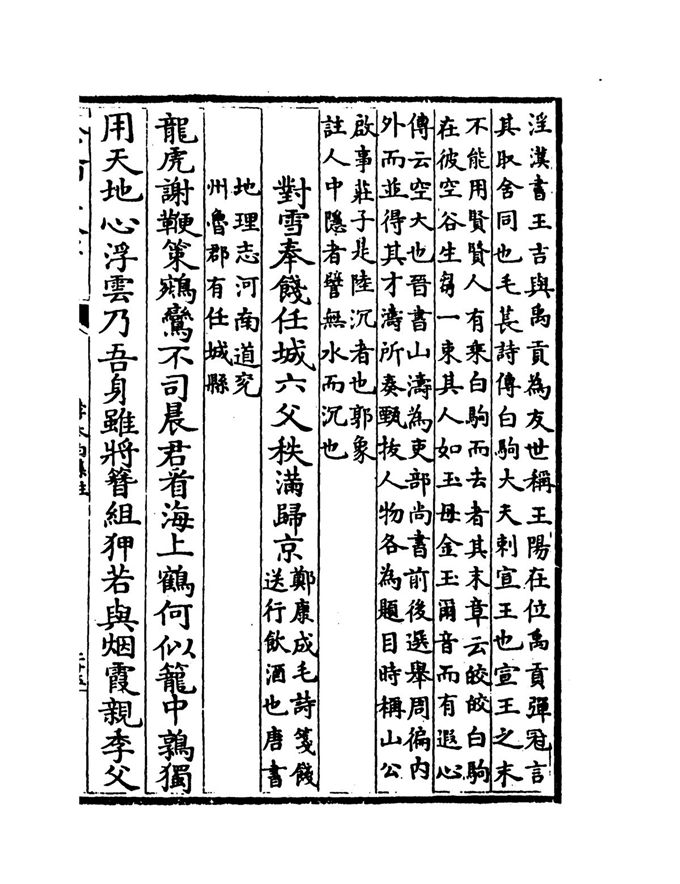 淫漢書王吉與禹貢為友世稱王陽在位禹貢彈冠言
其取舍同也毛萇詩傳白駒大夫刺宣王也宣王之末
不能用賢賢人有乘白駒而去者其末章云皎皎白駒
在彼空谷生芻一束其人如玉毋金玉爾音而有遐心
傳云空大也晉書山濤為吏部尚書前後選舉周徧内
外而並得其才濤所奏甄拔人物各為題目時稱山公
啟事莊子是陸沉者也郭象
註人中隱者譬無水而沉也
對雪奉餞任城六父秩滿歸京
鄭康成毛詩箋餞
送行飲酒也唐書
地理志河南道兖
州魯郡有任城縣
龍虎謝鞭策鵷鸞不司晨君看海上鶴何似籠中鶉獨
用天地心浮雲乃吾身雖將簪組狎若與烟霞親季父